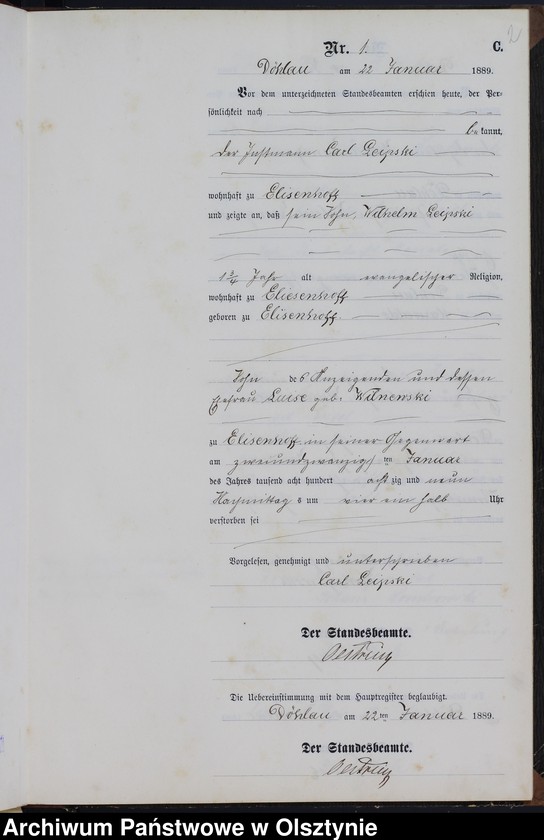 2
Nr. 1. C.
Döhlau am 22 Januar 1889.
Vor dem unterzeichneten Standesbeamten erschien heute, der Per-
sönlichkeit nach
bekannt,
der Instmann Carl Leipski
wohnhaft zu Elisenhoff
und zeigte an, daß sein Sohn, Wilhelm Leipski
1 3/4 Jahr alt evangelischer Religion,
wohnhaft zu Eliesenhoff
geboren zu Elisenhoff
Sohn des Anzeigenden und dessen
Ehefrau Luise geb.
zu Elisenhoff in seiner Gegenwart
am zweiundzwanzigsten Januar
des Jahres tausend acht hundert achtzig und neun
Nachmittags um vier ein halb Uhr
verstorben sei
Vorgelesen, genehmigt und unterschrieben
Carl Leipski
Der Standesbeamte.
Die Uebereinstimmung mit dem Hauptregister beglaubigt.
Döhlau am 22ten Januar 1889.
Der Standesbeamte.
Archiwum Państwowe w Olsztynie